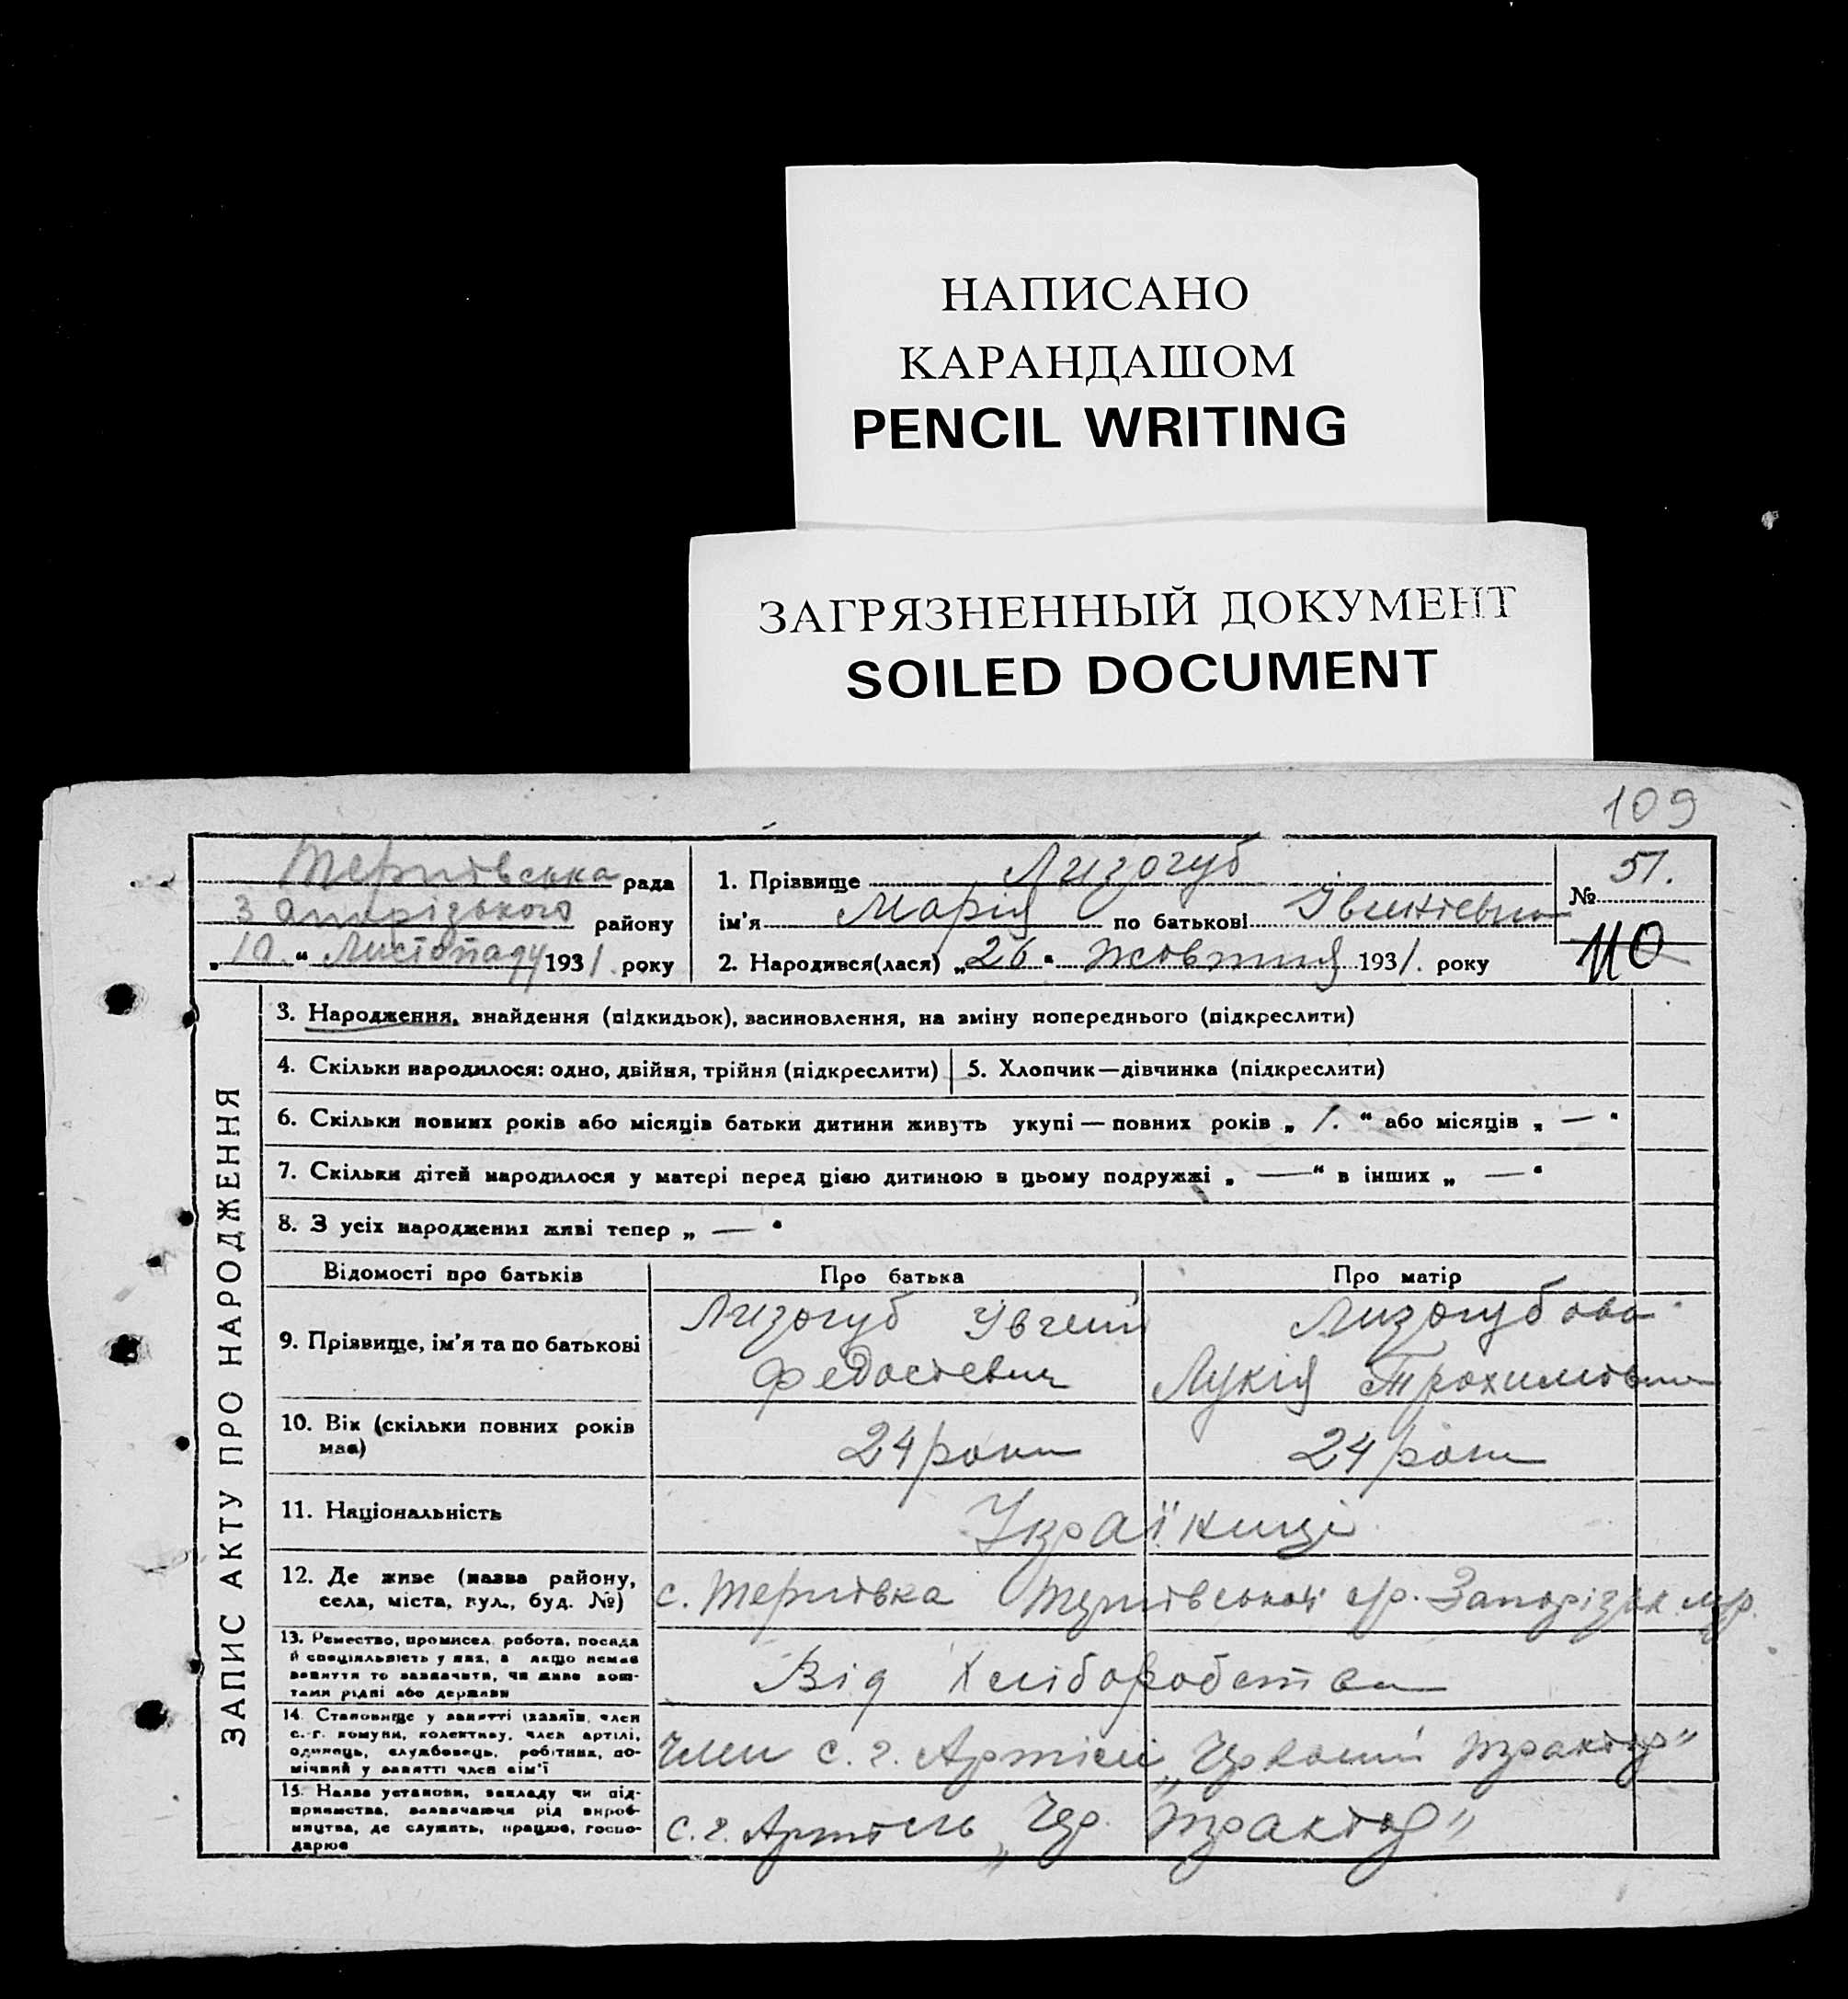 НАПИСАНО
КАРАНДАШОМ
PENCIL WRITING
ЗАГРЯЗНЕННЫЙ ДОКУМЕНТ
SOILED DOCUMENT
109
Тернівська рада
Запорізького району
„10“ Листопаду 1931 року
1. Прізвище Лизогуб
ім'я Марія по батькові
2. Народився(лася) „26“ жовтня 1931. року
№ 51.
110
ЗАПИС АКТУ ПРО НАРОДЖЕННЯ
3. Народження, знайдення (підкидьок), засиновлення, на зміну попереднього (підкреслити)
4. Скільки народилося: одно, двійня, трійня (підкреслити) 5. Хлопчик—дівчинка (підкреслити)
6. Скільки повних років або місяців батьки дитини живуть укупі — повних років „1.“ або місяців „—“
7. Скільки дітей народилося у матері перед цією дитиною в цьому подружжі „—“ в інших „—“
8. З усіх народжених живі тепер „—“
Відомості про батьків Про батька Про матір
9. Прізвище, ім'я та по батькові
Лизогуб Івген
Федостевич
Лизогубова
Лукія Трохимовна
10. Вік (скільки повних років
має)
24 роки 24 роки
11. Національність Українці
12. Де живе (назва району,
села, міста, вул., буд. №)
с. Тернівка Тернівської с/р. Запорізьк. м/р.
13. Ремество, промисел, робота, посада
й спеціяльність у них, а якщо немає
заняття то зазначити, чи живе кош-
тами рідні або держави
Від Хліборобства
14. Становище у занятті (хазяїн, член
с.-г. комуни, колективу, член артілі,
одинець, службовець, робітник, по-
мічний у занятті член сім'ї
Член с. г. Артілі „Червоний трактор“
15. Назва установи, закладу чи під-
приємства, зазначаючи рід вироб-
ництва, де служить, працює, госпо-
дарює
с. г. Артіль „Чер. трактор“